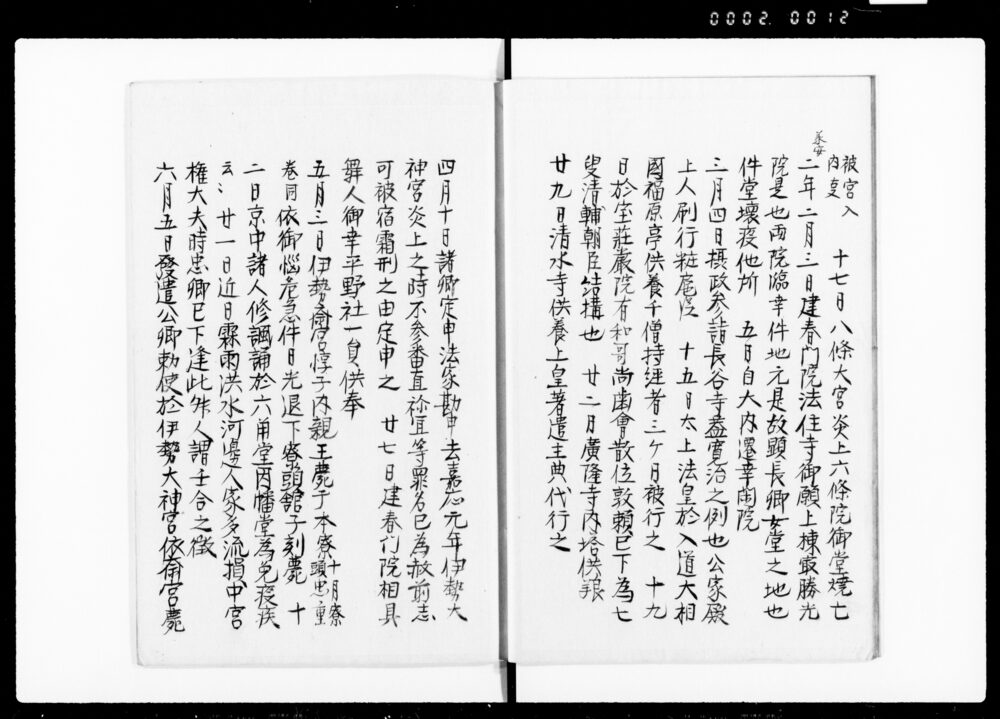 0002.0012
被宮入
内更　十七日八條大宮炎上六條院御堂焼亡
承安
二年二月三日建春門院法住寺御願上棟最勝光
院是也両院臨幸件地元是故顕長卿女堂之地也
件堂壊渡他所　五日自大内還幸閑院
三月四日摂政参詣長谷寺蓋寛治之例也公家殿
上人刷行粧扈従　十五日太上法皇於入道大相
國福原亭供養千僧持経者三ケ日被行之　十九
日於宝莊厳院有和哥尚歯會散位敦頼已下為七
叟清輔朝臣結構也　廿二日廣隆寺内塔供養
廿九日清水寺供養上皇著遣主典代行之
四月十日諸卿定申法家勘申去嘉応元年伊勢大
神宮炎上之時不参番直祢宜等罪名已為赦前志
可被宿霜刑之由定申之　廿七日建春門院相具
舞人御幸平野社一員供奉
五月三日伊勢斎宮惇子内親王薨于本寮頭忠重
十月寮
巻同依御悩危急件日光退下寮頭舘子刻薨　十
二日京中諸人修諷誦於六角堂因幡堂為免疫疾
云々　廿一日近日霖雨洪水河邊人家多流損中宮
権大夫時忠卿已下逢此殃人謂壬合之徴
六月五日發遣公卿勅使於伊勢大神宮依斎宮薨